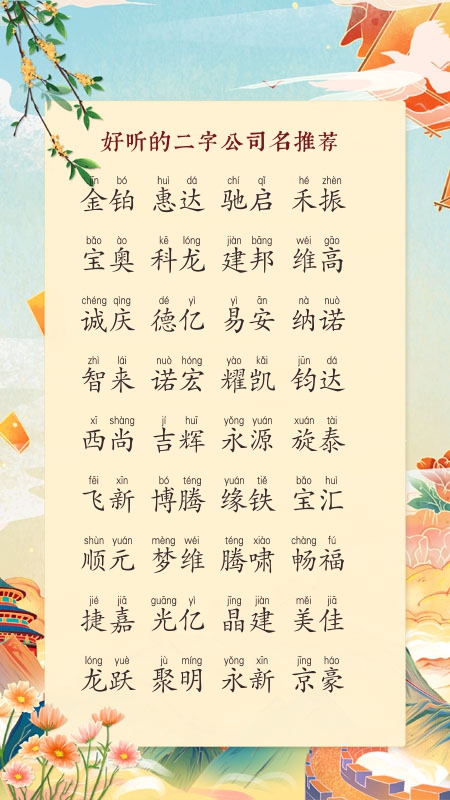 好听的二字公司名推荐
jīn bó huì dá chí qǐ hé zhèn
金铂 惠达 驰启 禾振
bǎo ào kē lóng jiàn bāng wéi gāo
宝奥 科龙 建邦 维高
chéng qìng dé yì yì ān nà nuò
诚庆 德亿 易安 纳诺
zhì lái nuò hóng yào kǎi jūn dá
智来 诺宏 耀凯 钧达
xī shàng jí huī yǒng yuán xuán tài
西尚 吉辉 永源 旋泰
fēi xīn bó téng yuán tiě bǎo huì
飞新 博腾 缘铁 宝汇
shùn yuán mèng wéi téng xiào chàng fú
顺元 梦维 腾啸 畅福
jié jiā guāng yì jīng jiàn měi jiā
捷嘉 光亿 晶建 美佳
lóng yuè jù míng yǒng xīn jīng háo
龙跃 聚明 永新 京豪